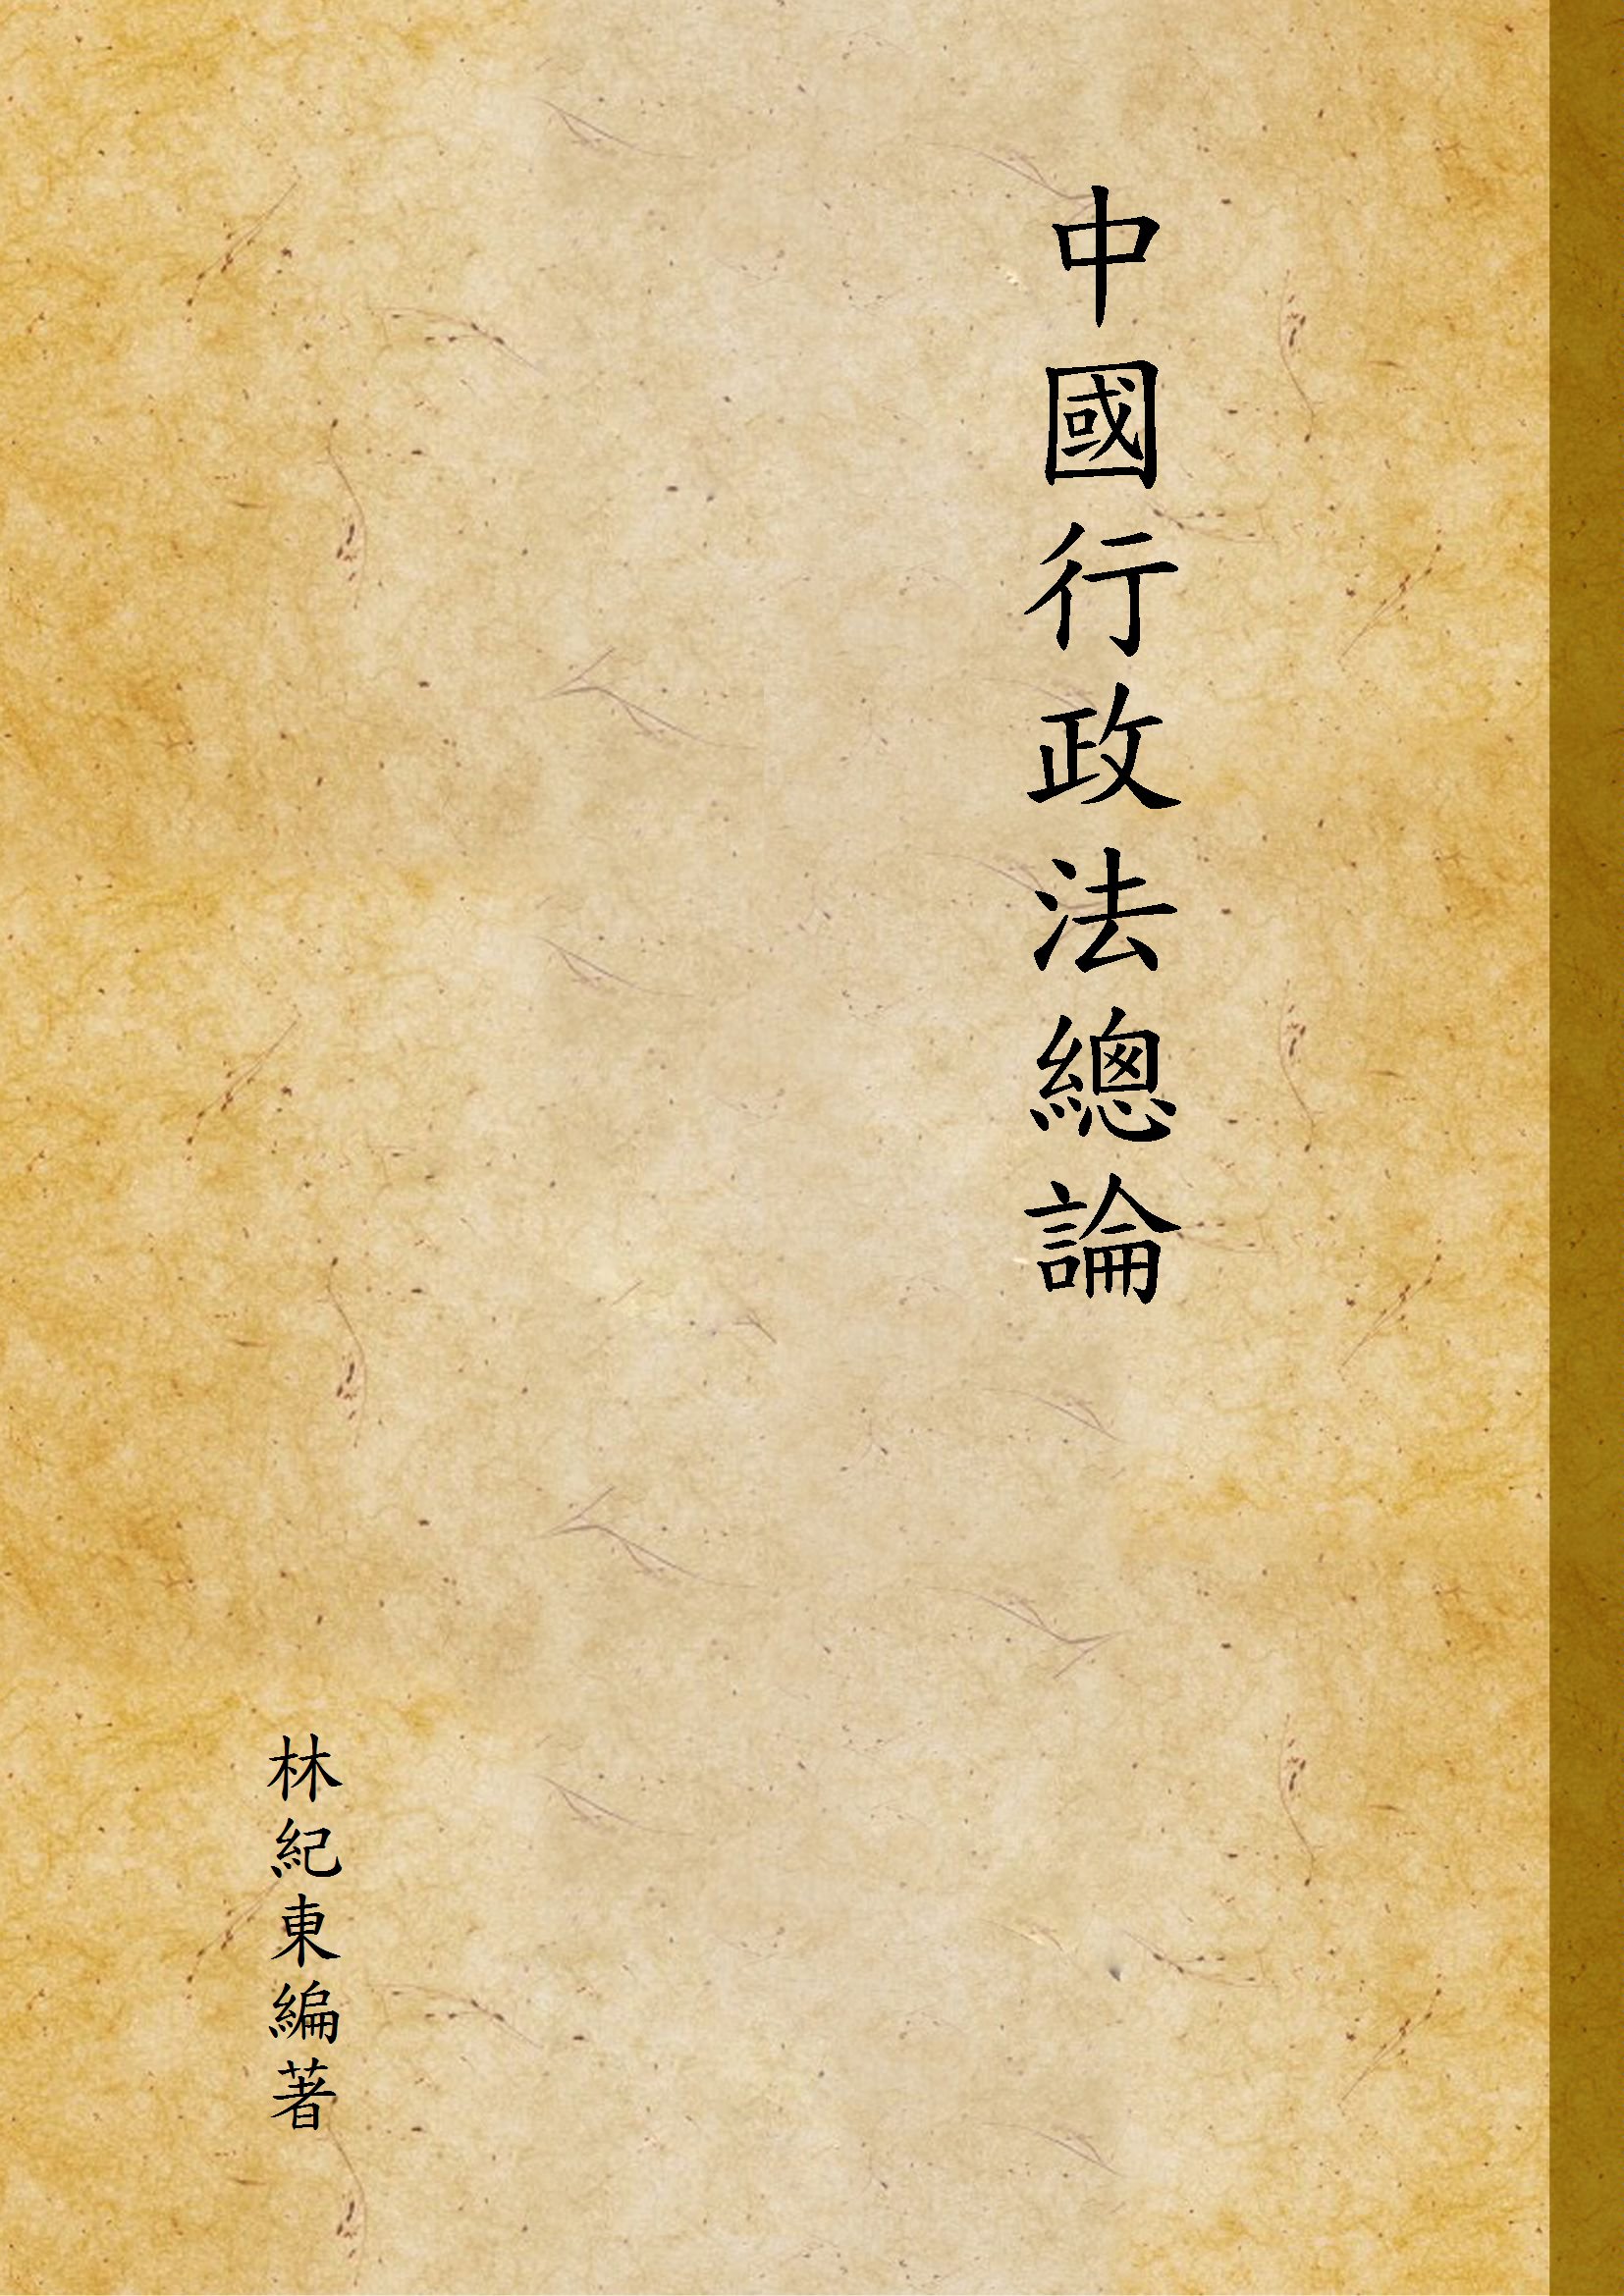 中國行政法總論
林紀東編著